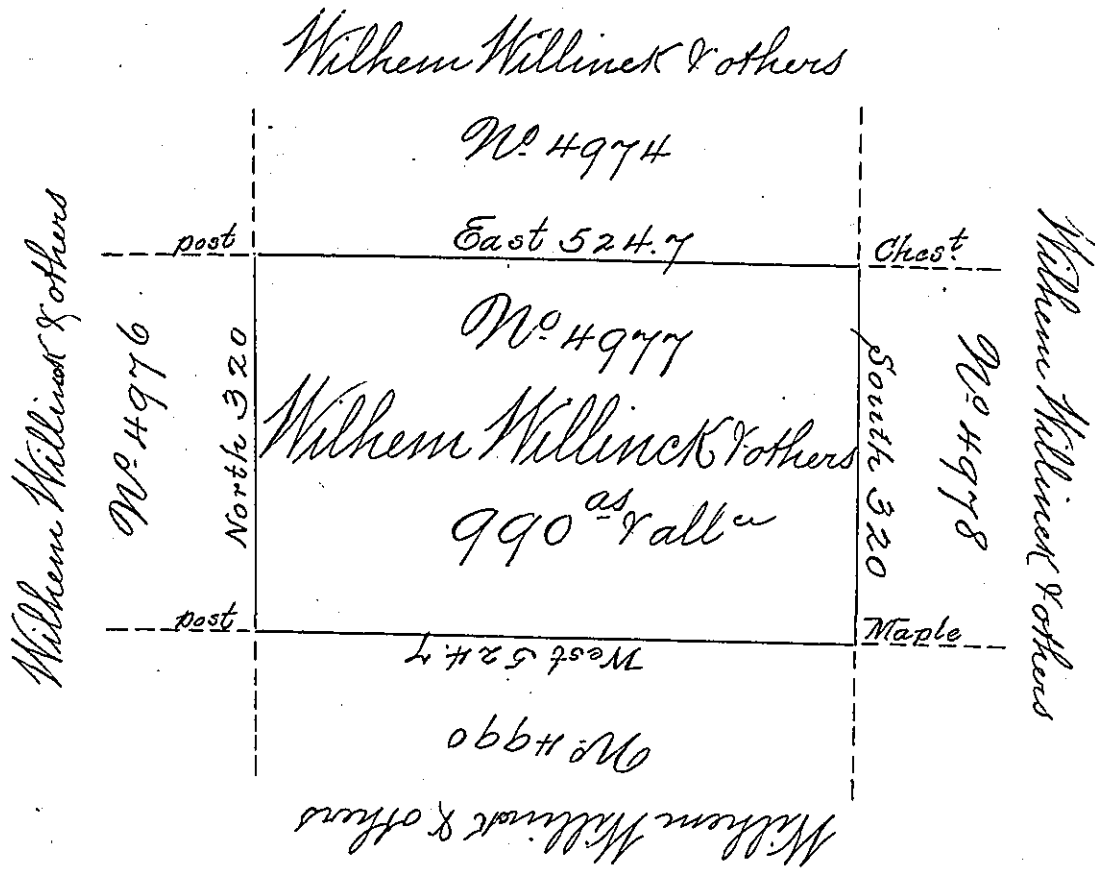 Wilhem Willinck & others
No. 4974
post
East 524.7
Chest.
Wilhem Willinck & others
No. 4976
North 320
No. 4977
Wilhem Willinck & others
990 as & alle
South 320
No. 4978
Wilhem Willinck & others
post
West 524.7
Maple
No. 4990
Wilhem Willinck & others